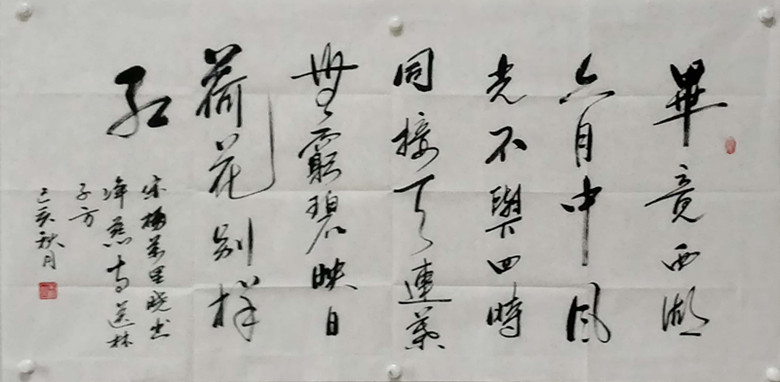 畢竟西湖
六月中風
光不與四時
同接天連葉
無窮碧映日
荷花別樣
紅
宋楊萬里曉出
淨慈寺送林
子方
己亥秋月